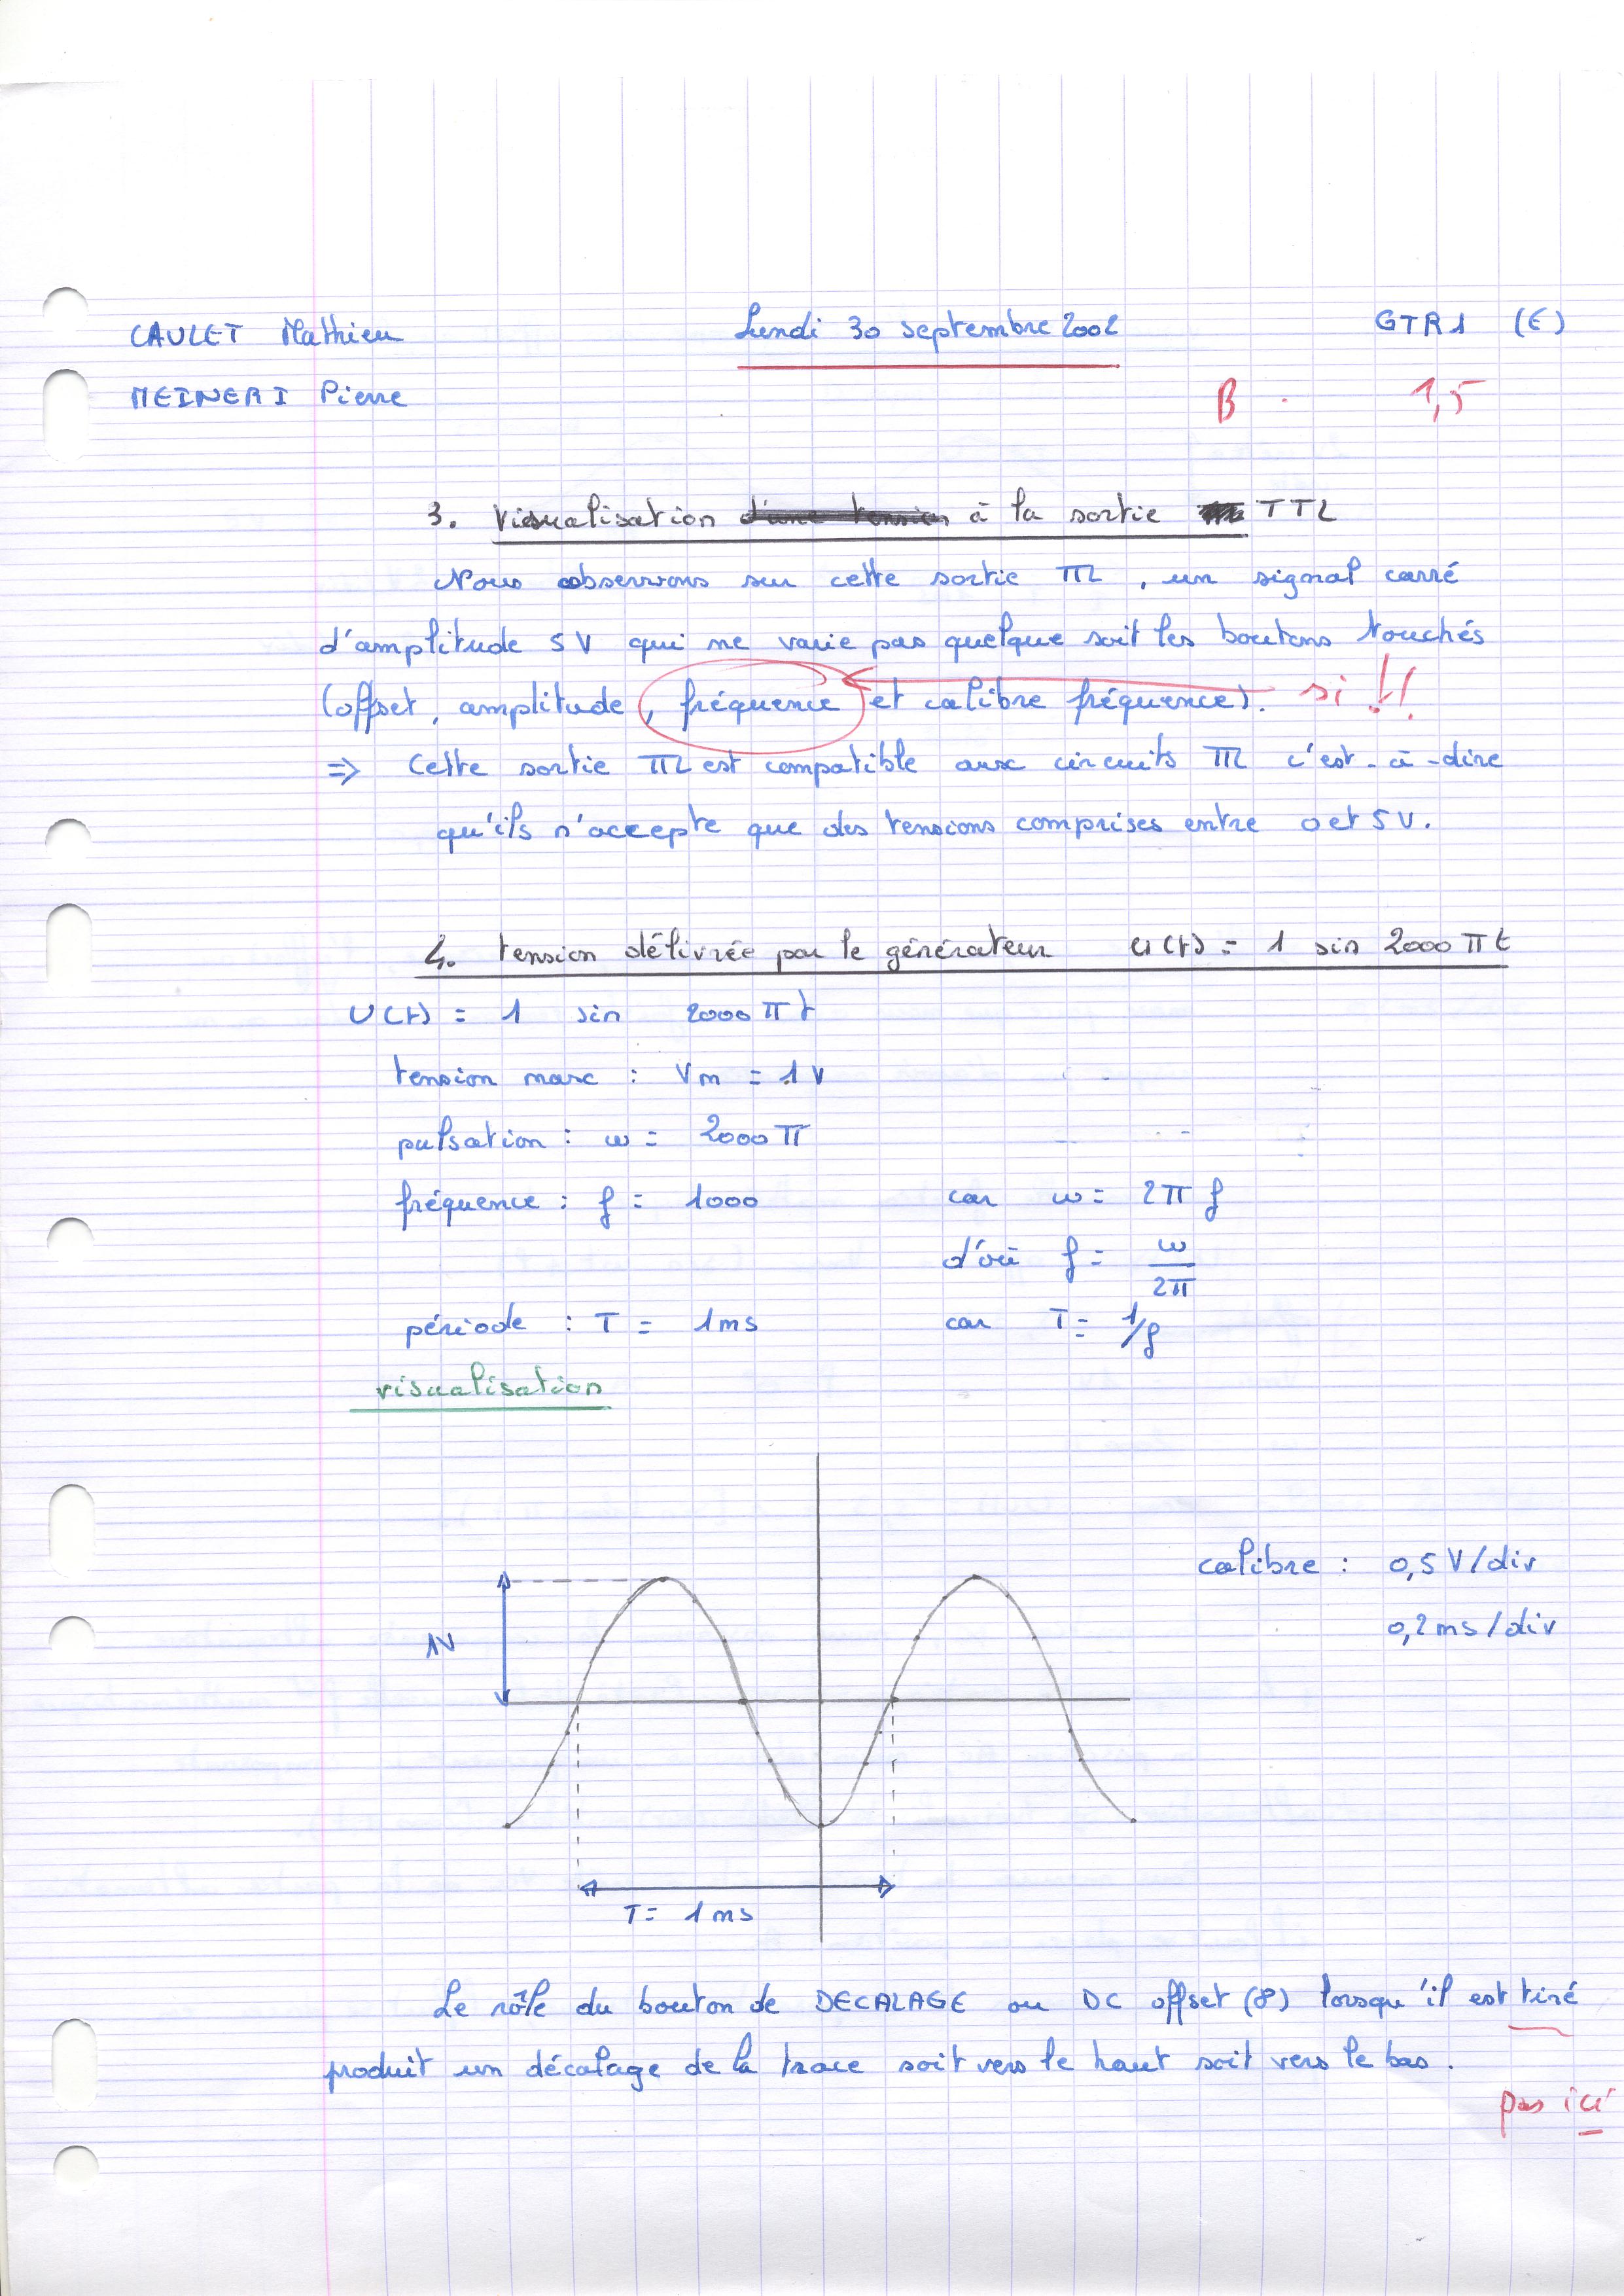 CAULET Mathieu Lundi 30 septembre 2002 GTR1 (E)
MEINERI Pierre B 1,5
3. Visualisation à la sortie TTL
Nous observons sur cette sortie TTL, un signal carré
d'amplitude 5V qui ne varie pas quelque soit les boutons touchés
(offset, amplitude, fréquence et calibre fréquence). si !!
⇒ Cette sortie TTL est compatible aux circuits TTL c'est-à-dire
qu'ils n'accepte que des tensions comprises entre 0 et 5V.
4. tension délivrée par le générateur u(t) = 1 sin 2000 π t
U(t) = 1 sin 2000 π t
tension max : Vm = 1V
pulsation : ω = 2000 π
fréquence : f = 1000 car ω = 2π f
d'où f = ω/2π
période : T = 1ms car T = 1/f
visualisation
calibre : 0,5 V/div
0,2ms/div
1V
T = 1ms
Le rôle du bouton de DECALAGE ou DC offset (8) lorsqu'il est tiré
produit un décalage de la trace soit vers le haut soit vers le bas.
pas ici